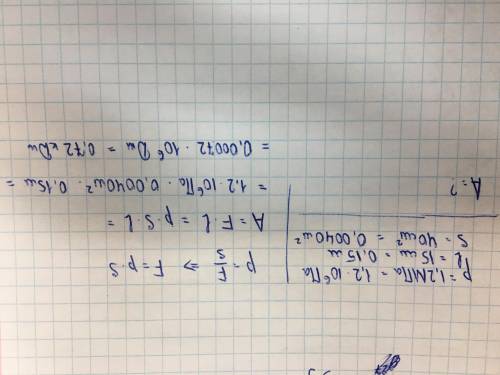 p = 1,2 МПа = 1,2 · 10⁶ Па
l = 15 см = 0,15 м
S = 40 см² = 0,0040 м²
A = ?
p = F/S ⇒ F = p · S
A = F · l = p · S · l =
= 1,2 · 10⁶ Па · 0,0040 м² · 0,15 м =
= 0,00072 · 10⁶ Дж = 0,72 кДж